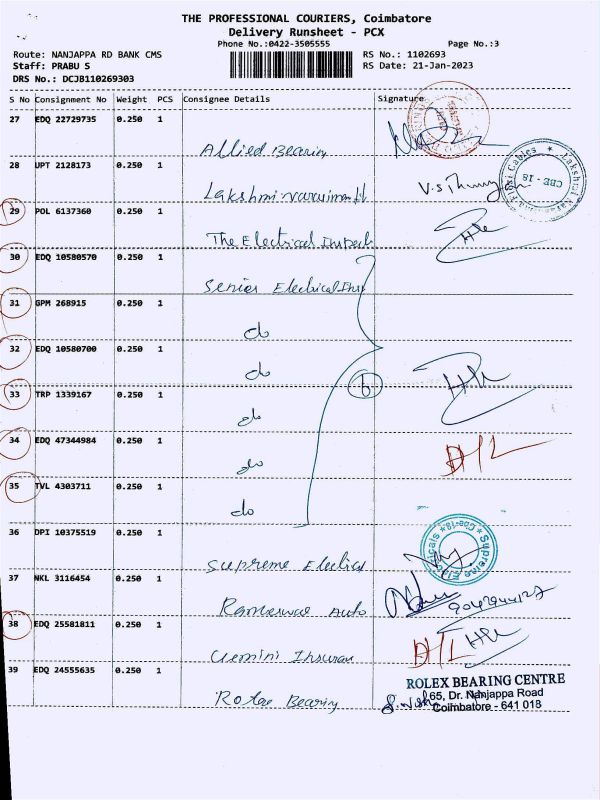 THE PROFESSIONAL COURIERS, Coimbatore
Delivery Runsheet - PCX
Phone No.:0422-3505555 Page No.:3
Route: NANJAPPA RD BANK CMS RS No.: 1102693
Staff: PRABU S RS Date: 21-Jan-2023
DRS No.: DCJB110269303
S No Consignment No Weight PCS Consignee Details Signature
27 EDQ 22729735 0.250 1
Allied Bearing
28 UPT 2128173 0.250 1
Lakshmi
V.S
Lakshmi Flexi Cables * CBE - 18
29 POL 6137360 0.250 1
The Electrical Inspect
30 EDQ 10580570 0.250 1
Senior Electrical Insp
31 GPM 268915 0.250 1
do
32 EDQ 10580700 0.250 1
do
33 TRP 1339167 0.250 1
do
6
34 EDQ 47344984 0.250 1
do
D/L
35 TVL 4303711 0.250 1
do
36 DPI 10375519 0.250 1
Supreme Electics
Supreme Electricals * Cbe-18 *
37 NKL 3116454 0.250 1
Rameswar Auto
9042944127
38 EDQ 25581811 0.250 1
Gemini Insuran
D/L
39 EDQ 24555635 0.250 1
Rolex Bearing
ROLEX BEARING CENTRE
165, Dr. Nanjappa Road
Coimbatore - 641 018